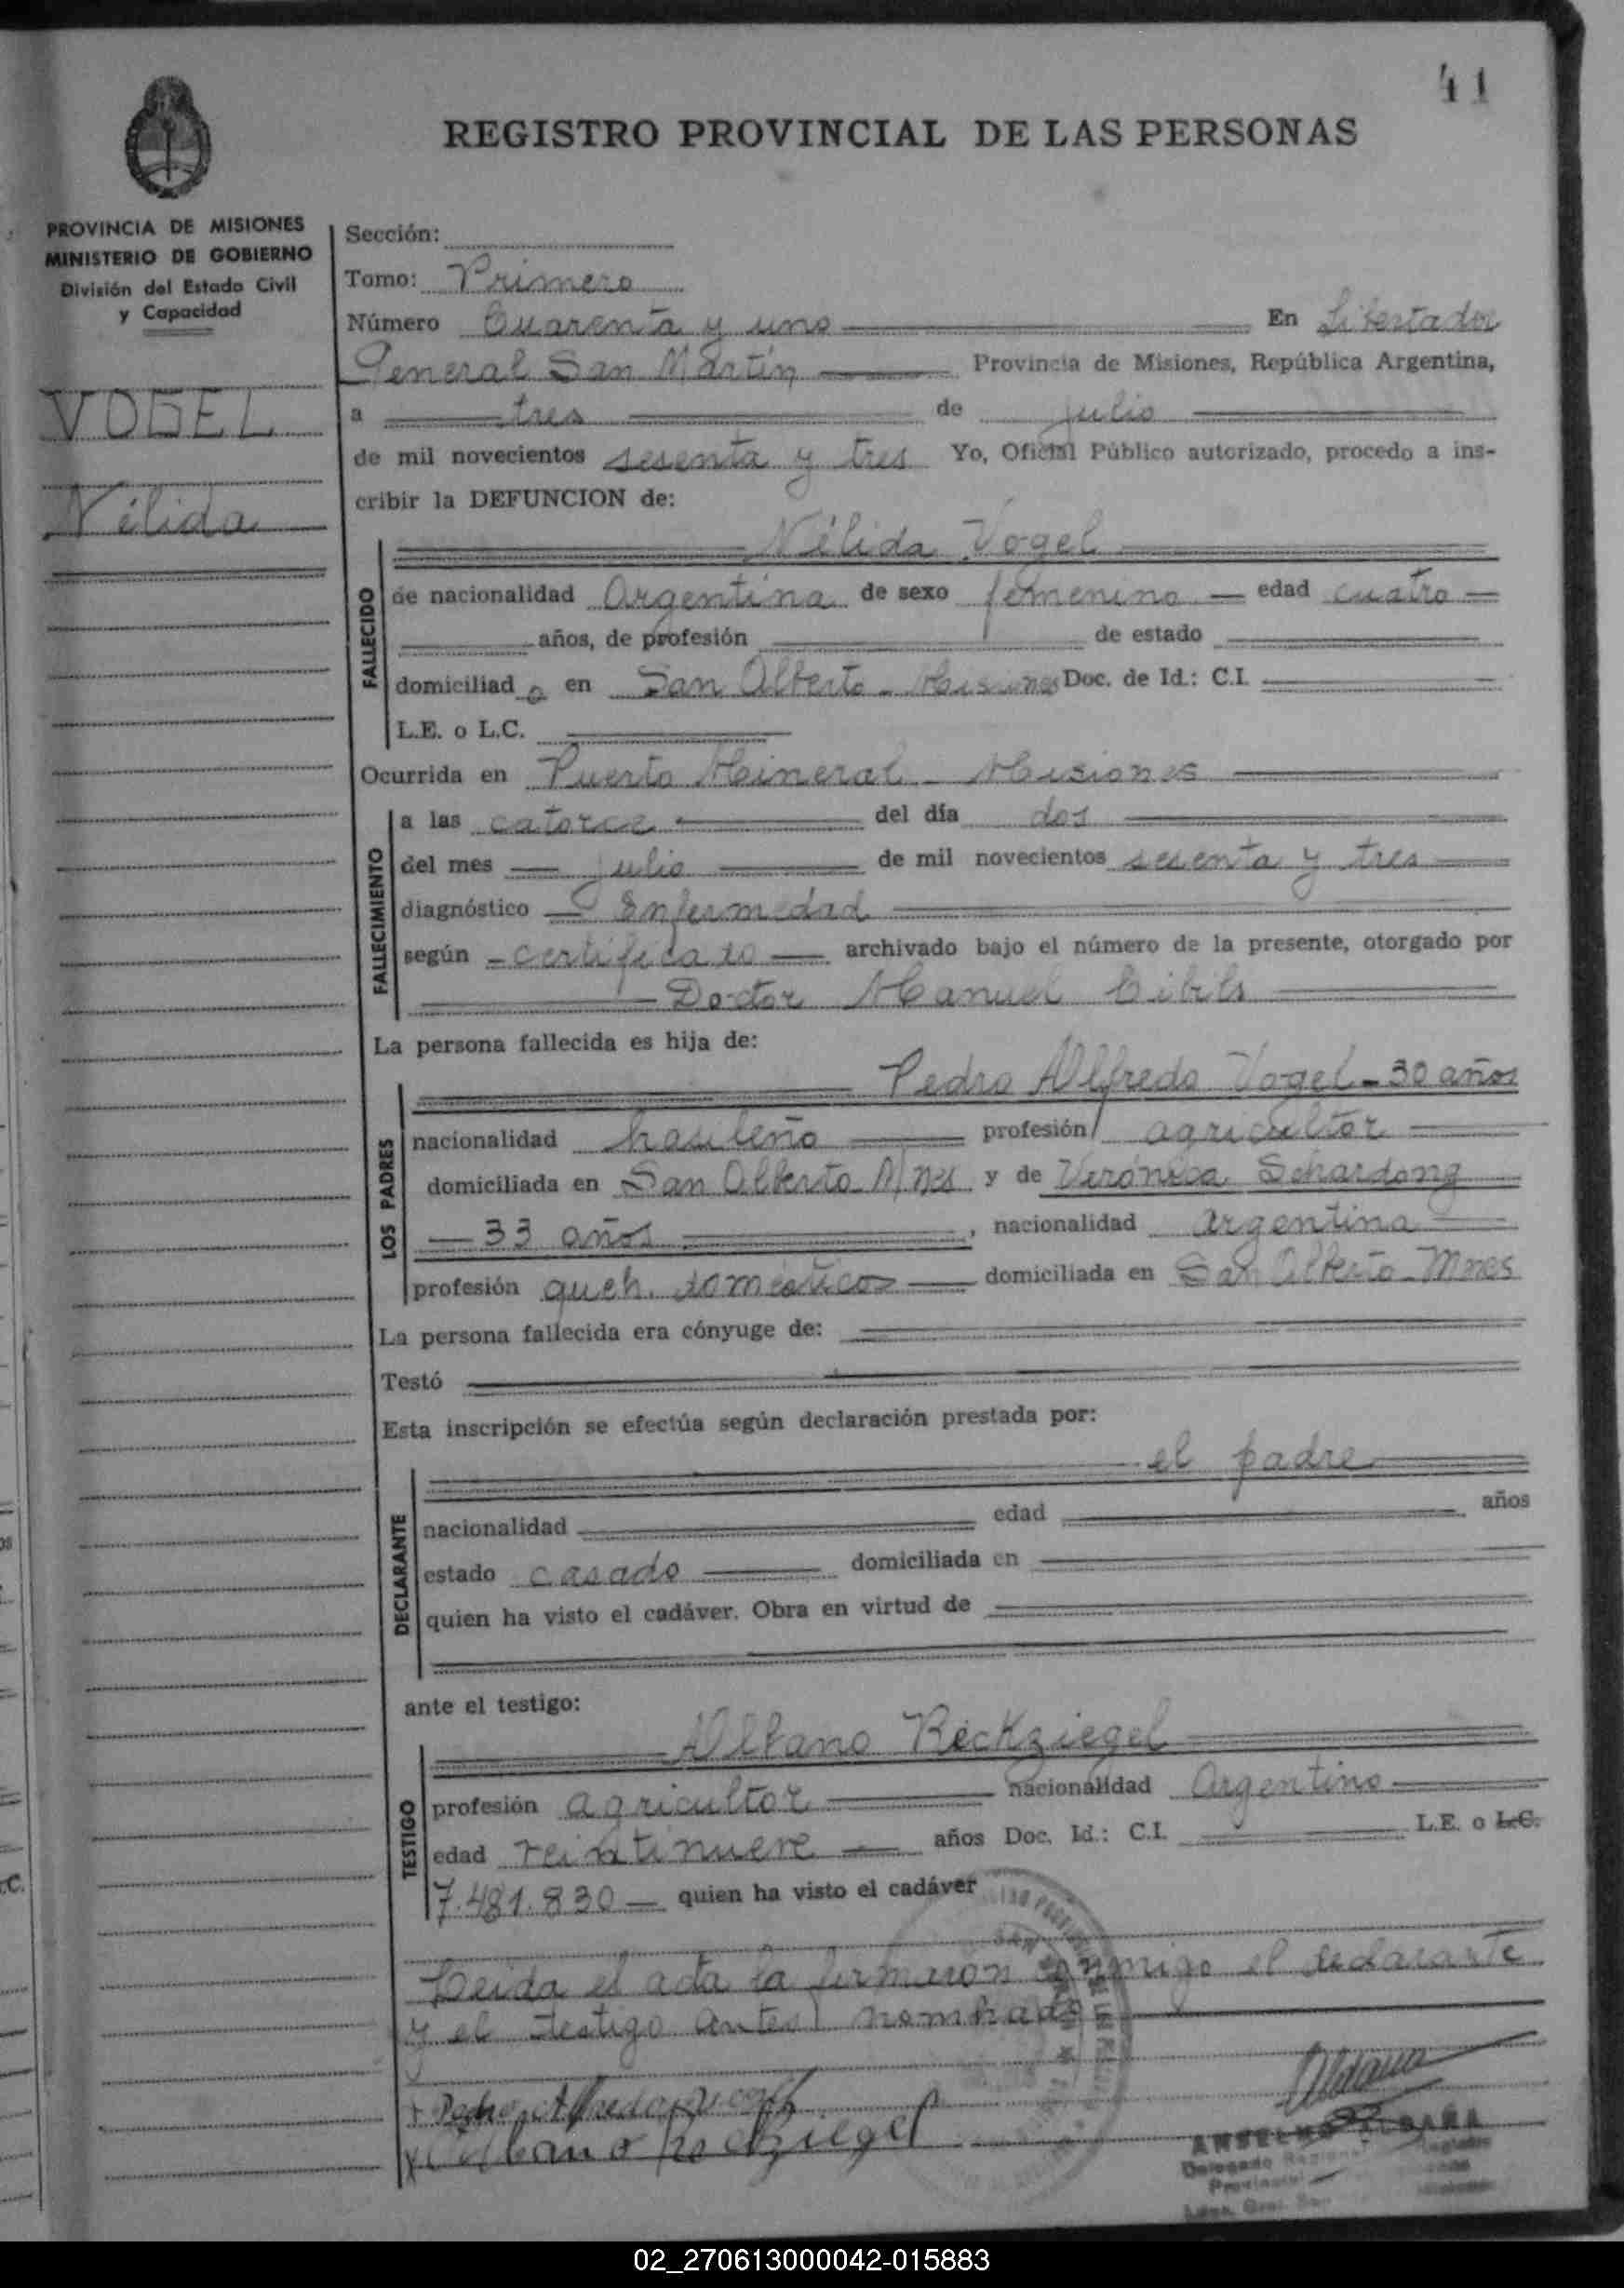 41
REGISTRO PROVINCIAL DE LAS PERSONAS
PROVINCIA DE MISIONES
MINISTERIO DE GOBIERNO
División del Estado Civil
y Capacidad
VOGEL
Nélida
Sección:
Tomo: Primero
Número Cuarenta y uno En Libertador
General San Martín Provincia de Misiones, República Argentina,
a tres de julio
de mil novecientos sesenta y tres Yo, Oficial Público autorizado, procedo a ins-
cribir la DEFUNCION de:
Nélida Vogel
FALLECIDO
de nacionalidad Argentina de sexo femenino edad cuatro
años, de profesión de estado
domiciliad a en San Alberto - Misiones Doc. de Id.: C.I.
L.E. o L.C.
Ocurrida en Puerto Mineral - Misiones
FALLECIMIENTO
a las catorce del día dos
del mes julio de mil novecientos sesenta y tres
diagnóstico Enfermedad
según certificado archivado bajo el número de la presente, otorgado por
Doctor Manuel Cibils
La persona fallecida es hija de:
LOS PADRES
Pedro Alfredo Vogel - 30 años
nacionalidad brasileño profesión agricultor
domiciliada en San Alberto Mnes y de Verónica Schardong
33 años , nacionalidad argentina
profesión queh. domésticos domiciliada en San Alberto - Mnes
La persona fallecida era cónyuge de:
Testó
Esta inscripción se efectúa según declaración prestada por:
DECLARANTE
el padre
nacionalidad edad años
estado casado domiciliada en
quien ha visto el cadáver. Obra en virtud de
ante el testigo:
TESTIGO
Albano Reckziegel
profesión agricultor nacionalidad Argentino
edad veintinueve años Doc. Id.: C.I. L.E. o L.C.
7.481.830 quien ha visto el cadáver
Leida el acta la firmaron conmigo el declarante
y el testigo antes nombrado
Pedro Alfredo Vogel
Albano Reckziegel
ANSELMO ALDAÑA
Delegado
02_270613000042-015883